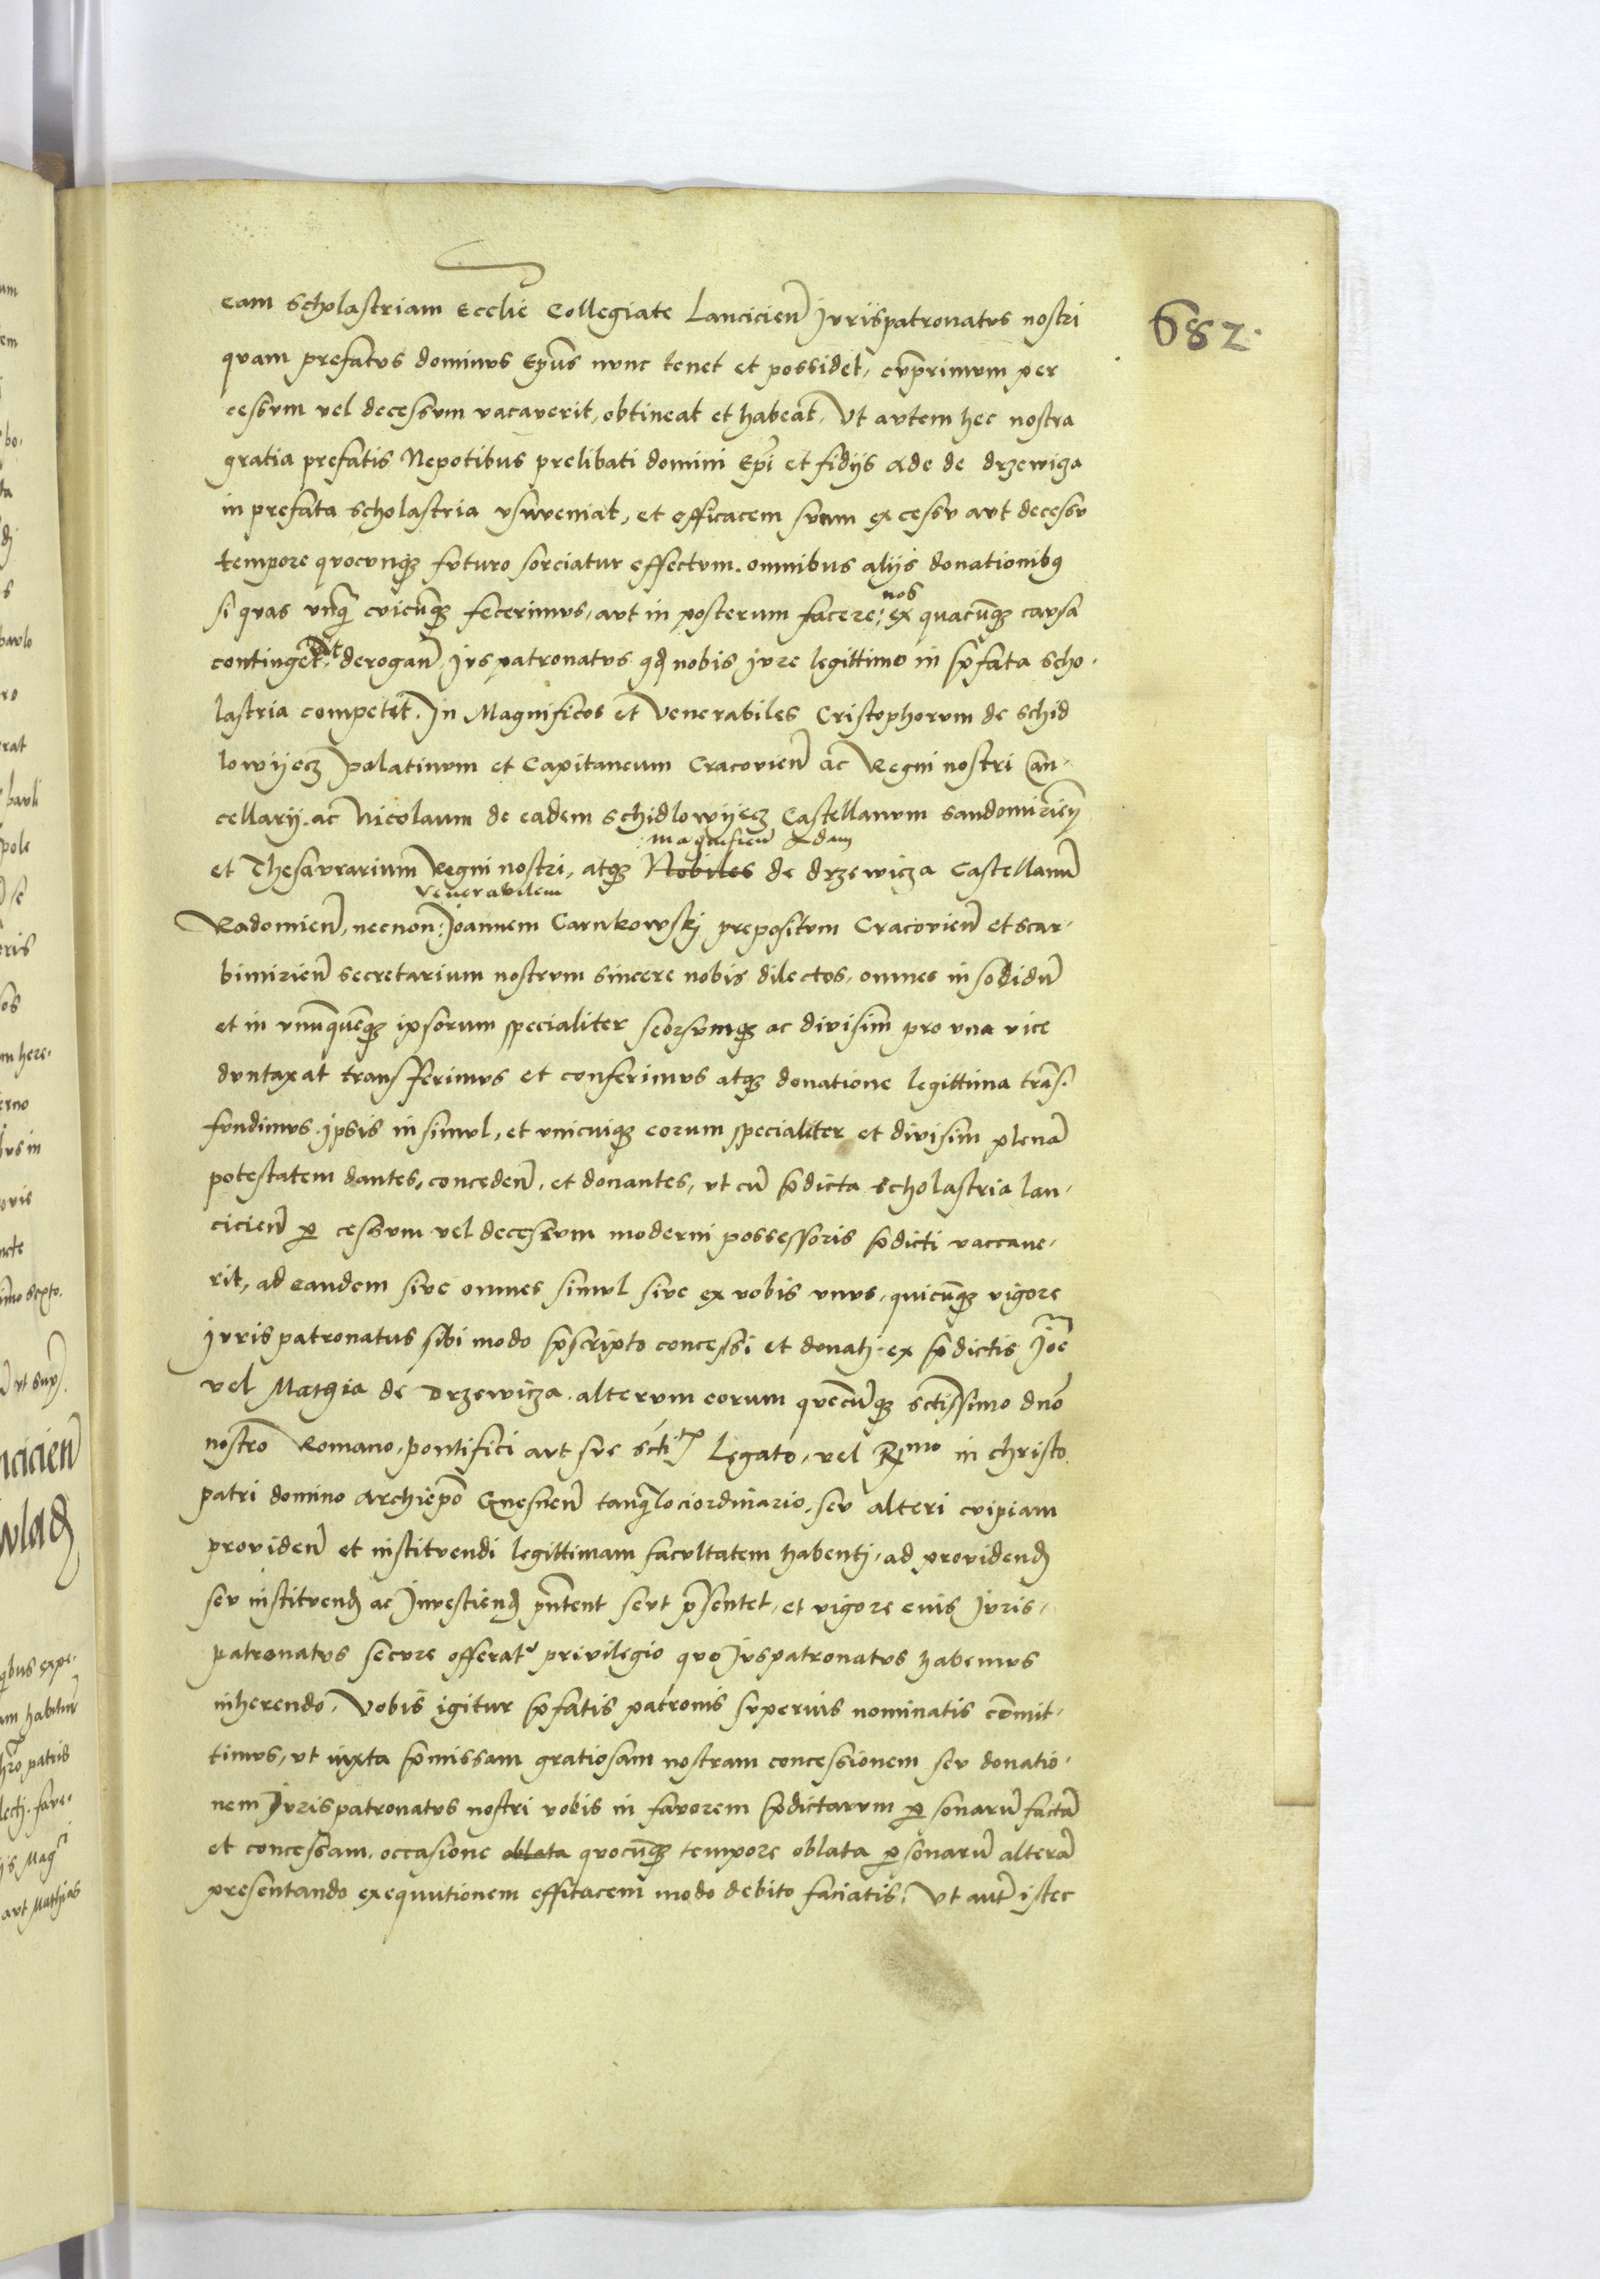 682.
eam scholastriam Ecclie Collegiate Lancicien̄ Jurispatronatus nostri
quam prefatus dominus Ep̄us nunc tenet et possidet, cu͂primum per
cessum vel decessum vacaverit, obtineat et habeat. Ut autem hec nostra
gratia prefatis Nepotibus prelibati domini Ep̄i et fidijs Ade de drzewiza
in prefata scholastria usuveniat, et efficacem suum ex cessu aut decessu
tempore quocunq̄ futuro sorciatur effectum. omnibus alijs donationibꝰ
si quas unq̄ cuicūq̄ fecerimus, aut in posterum facere nos ex quacūq̄ causa
continget, derogan̄ Jus patronatus qd nobis jure legittimo in p̄fata scho-
lastria competit. In Magnificos et Venerabiles Cristophorum de Schid
lowyecz palatinum et Capitaneum Cracovien̄ ac Regni nostri Can-
cellarij. ac Nicolaum de eadem Schidlowyecz Castellanum Sandomirien̄
magnificū Adam
et Thesaurarium Regni nostri, atq̄ Nobiles de drzewicza Castellanū
venerabilem
Radomien̄, necnon: Joannem Carnkowskj prepositum Cracovien̄ et Scar-
bimirien̄ secretarium nostrum sincere nobis dilectos, omnes in sodidū
et in unūquēq̄ ipsorum specialiter seorsumq̄ ac divisim pro una vice
duntaxat transferimus et conferimus atq̄ donatione legittima trās-
fundimus. ipsis insimul, et unicuiq̄ eorum specialiter et divisim plenā
potestatem dantes, conceden̄, et donantes, ut cū p̄dicta scholastria lan-
cicien̄ p cessum vel decessum moderni possessoris p̄dicti vaccave-
rit, ad eandem sive omnes simul sive ex vobis unus, quicūq̄ vigore
Juris patronatus sibi modo p̄scripto concessi et donati. ex p̄dictis Joē
vel Mathia de Drzewicza. alterum eorum quēcūq̄ sctissimo dno
nostro Romano, pontifici aut sue sctitis Legato, vel Rmo in christo
patri domino Archiepō Gnesnen̄ tanq̄ lociordinario, seu alteri cuipiam
providen̄ et instituendi legittimam facultatem habenti, ad providend
seu instituend ac Investiend pn̄tent seu p̄sentet, et vigore euis Juris-
patronatus secure offerat privilegio quo Juspatronatus habemus
inherendo. Vobis igitur p̄fatis patronis superius nominatis comit-
timus, ut iuxta p̄missam gratiosam nostram concessionem seu donatio-
nem Jurispatronatus nostri vobis in favorem p̄dictarum p sonarū factā
et concessam. occasione oblata quocūq̄ tempore oblata p sonarū alterā
presentando exequutionem efficacem modo debito faciatis. Ut aut̄ istec